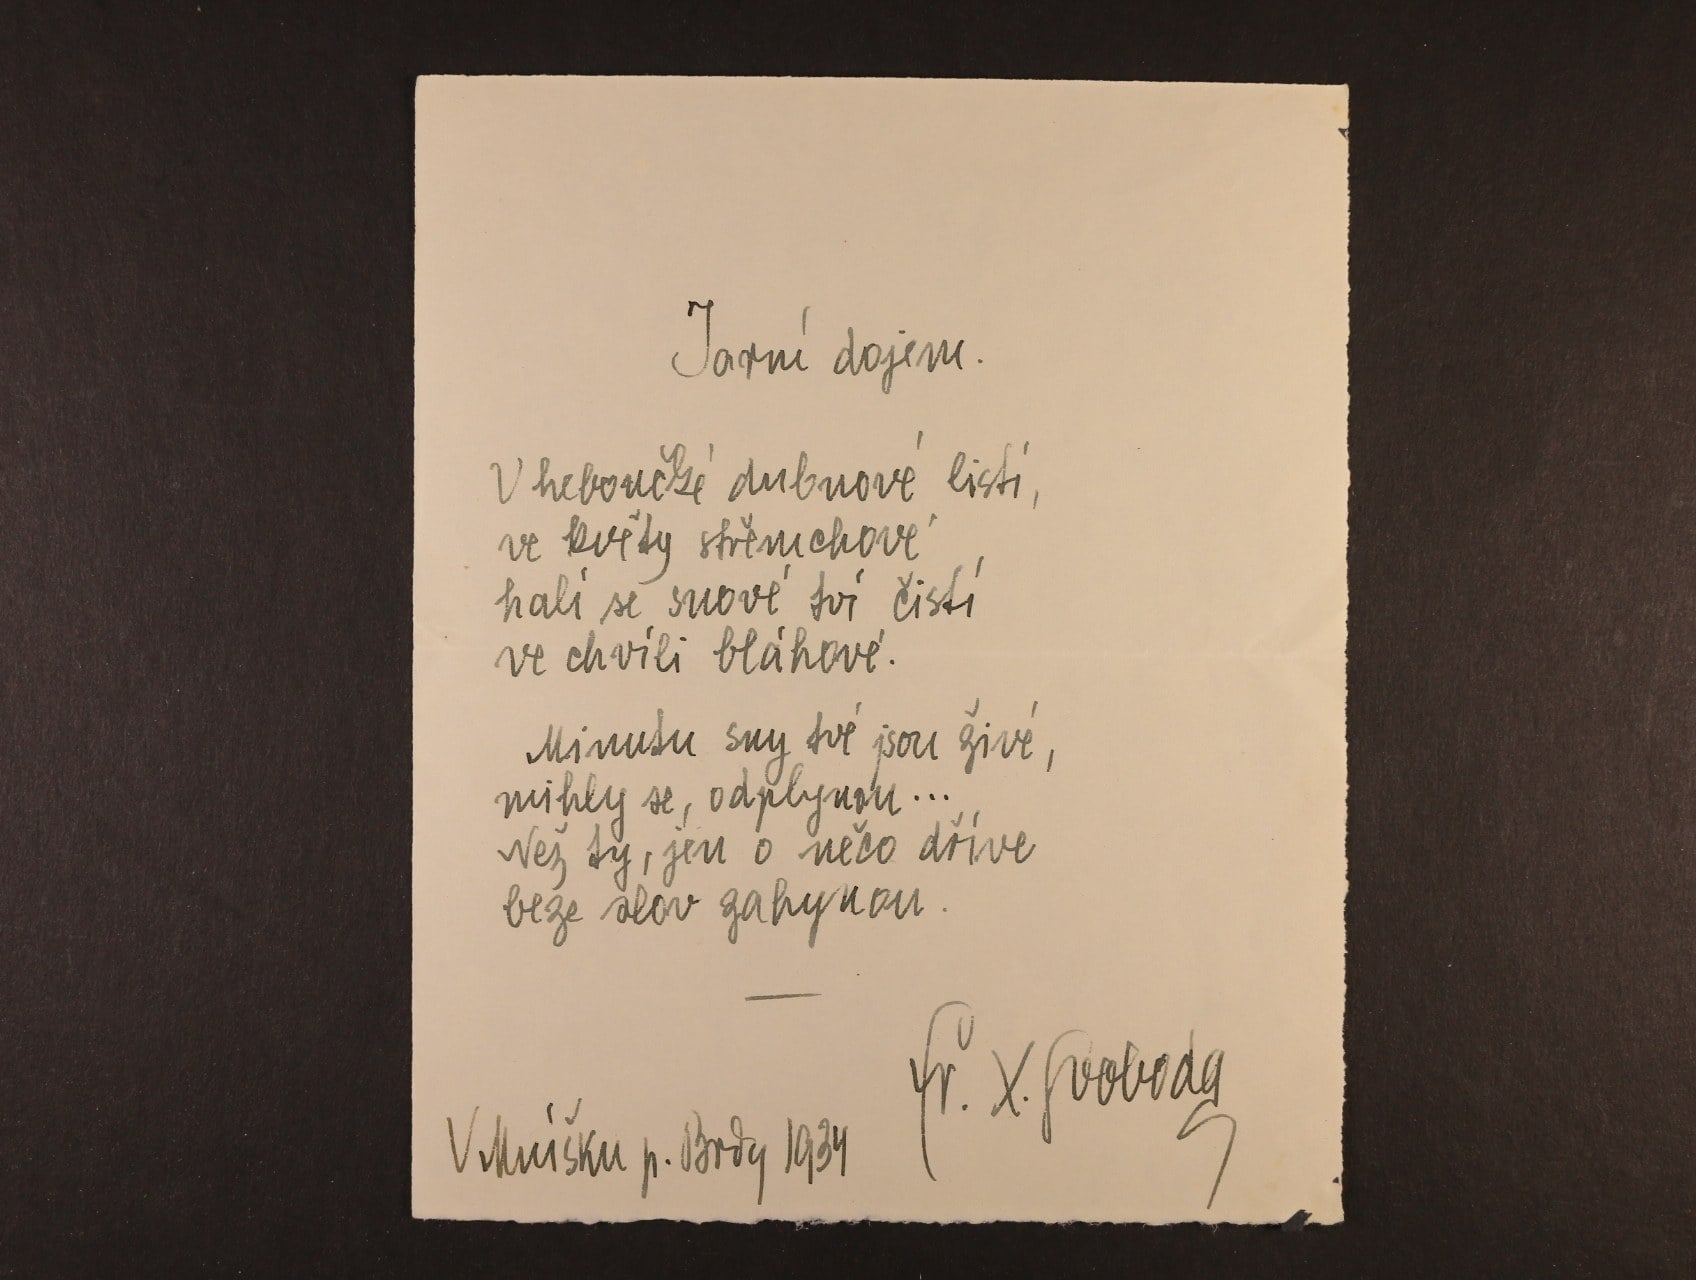 Jarní dojem.
V heboučké dubnové listí,
ve květy střemchové
halí se snové tví čistí
ve chvíli bláhové.
Minutu sny tvé jsou živé,
mihly se, odplynou...
Než ty, jen o něčo dříve
beze slov zahynou.
Fr. X. Svoboda
V Mníšku p. Brdy 1934